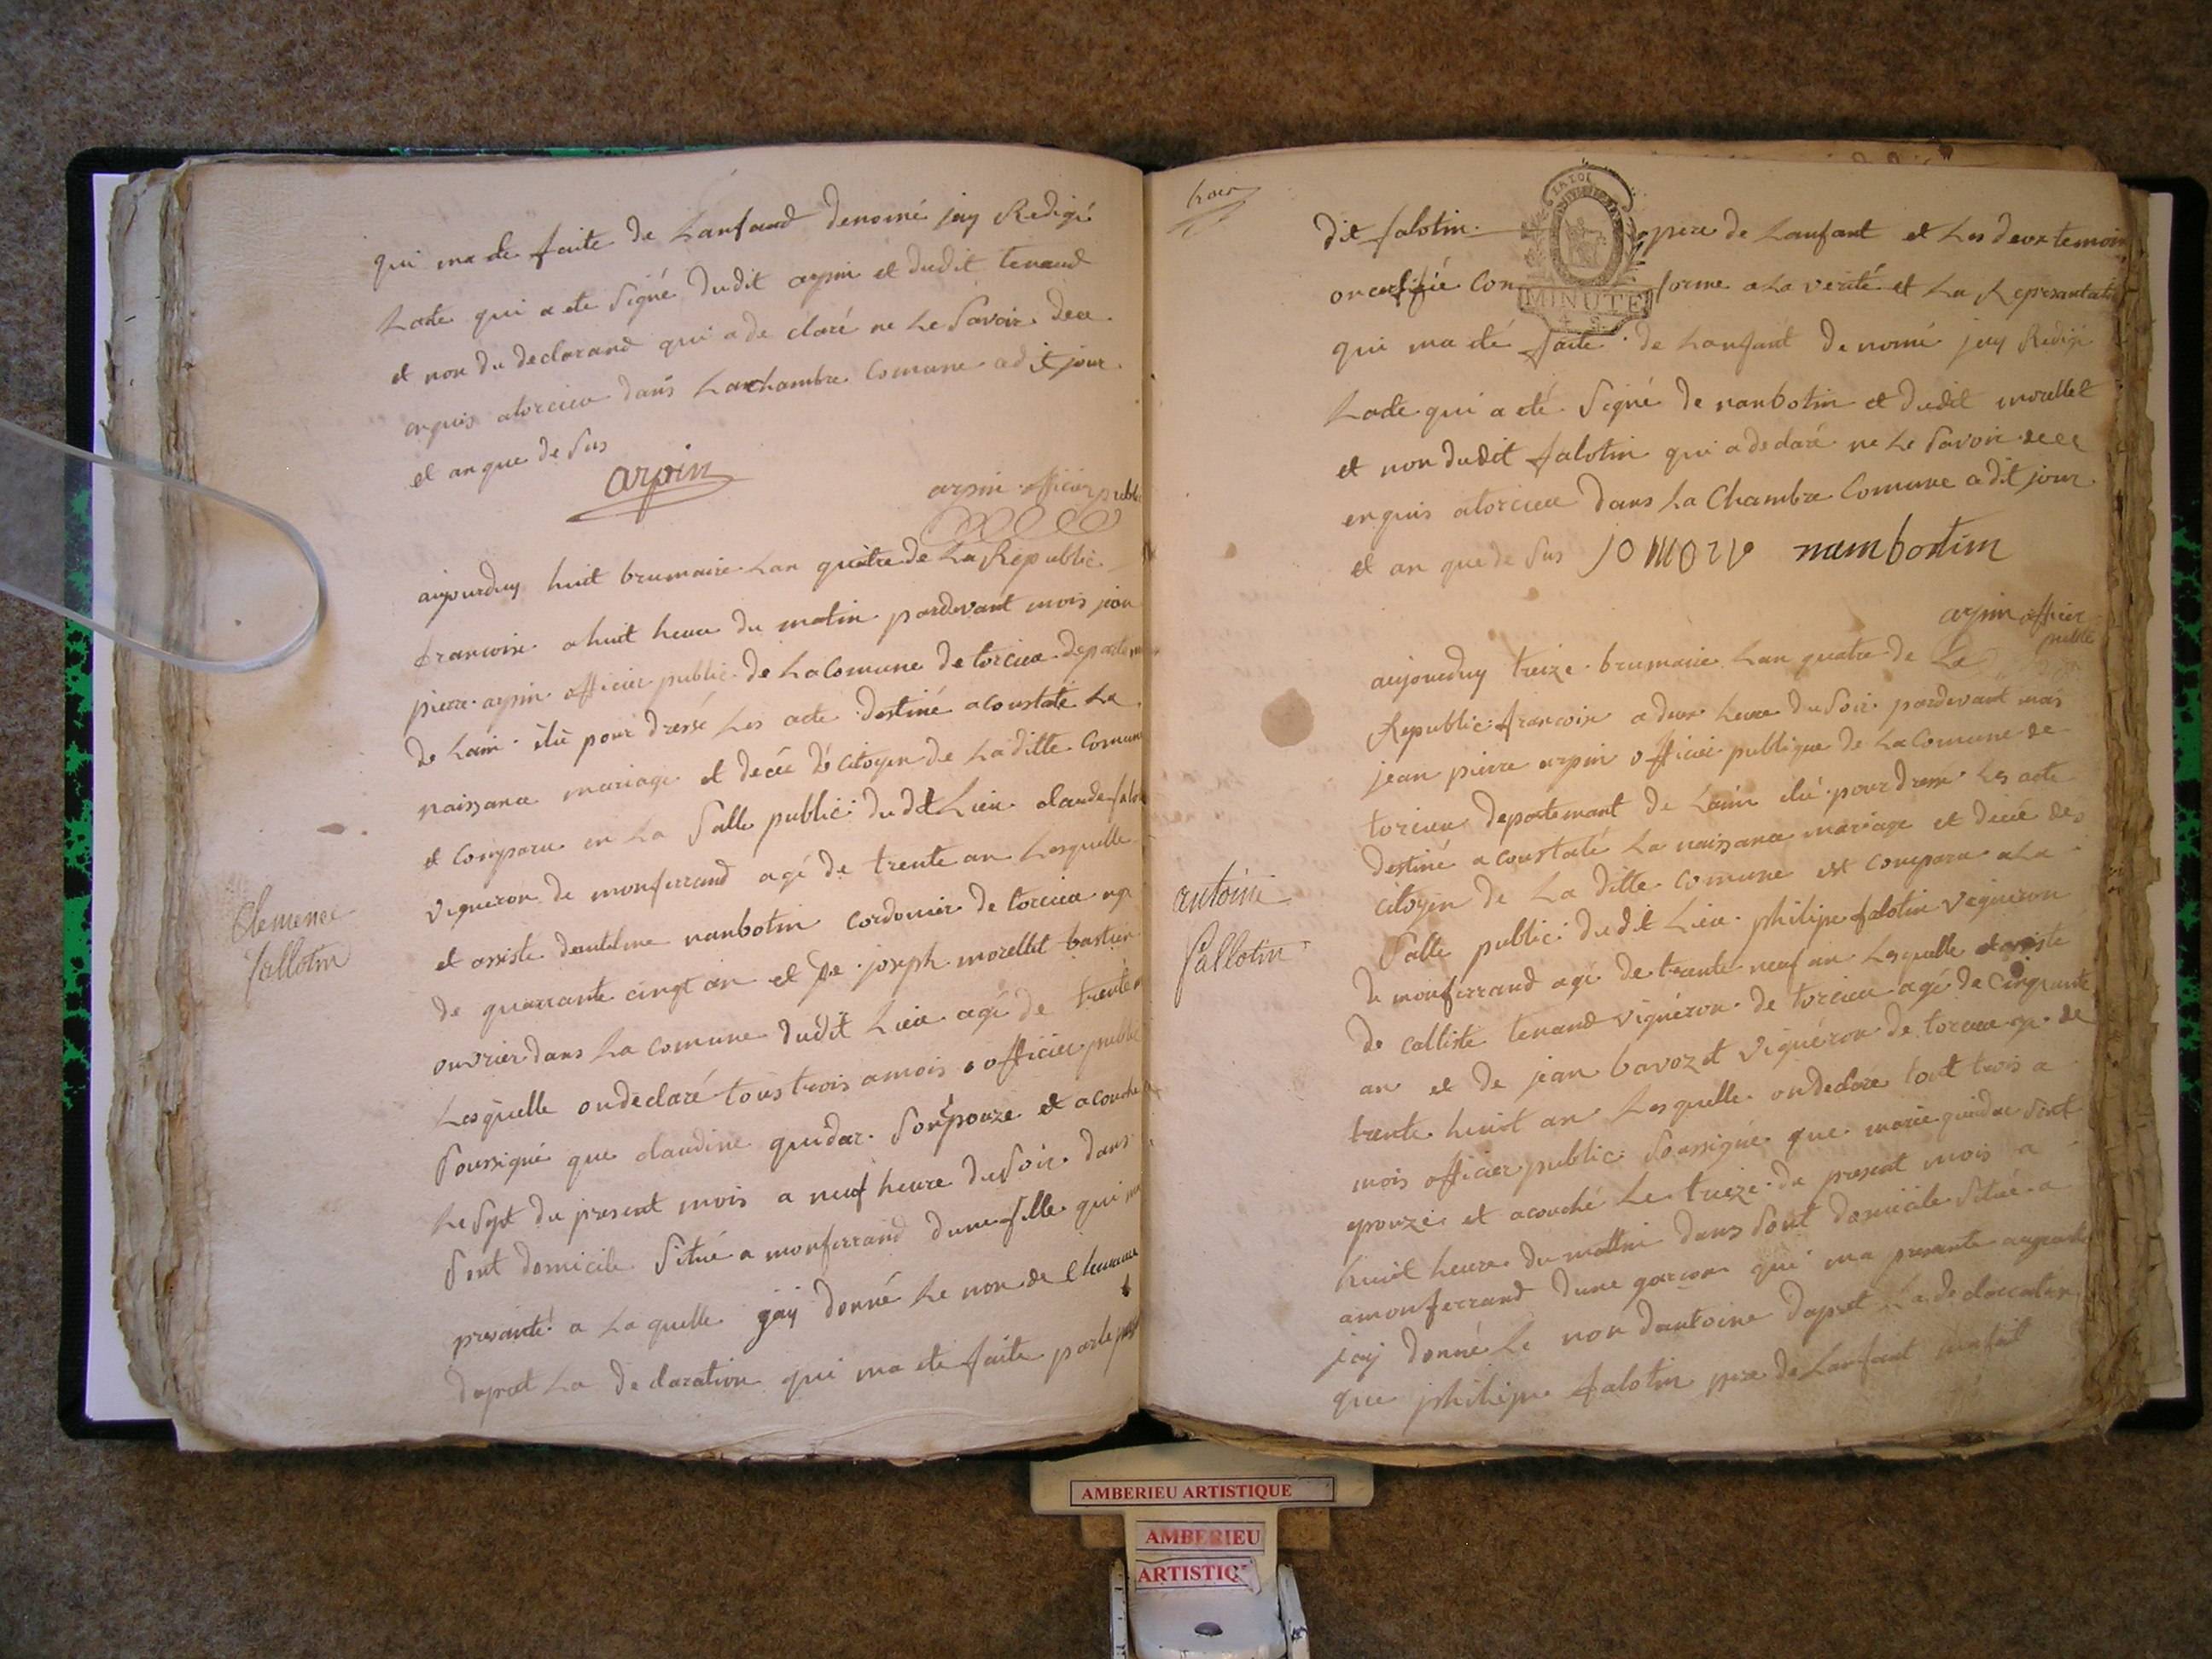 qui ma ete faite de Lanfand denomé jay Redigé
Lacte qui a ete Signé dudit arpin et dudit tenand
et non du declarand qui a de claré ne Le Savoir deu
enquis atorcieu dans La chambre Comune adit jour
et an que de Sus
arpin
arpin officier public
aujourduy huit brumaire Lan quatre de La Republic
francoise a huit heure du matin pardevant mois jean
pierre arpin officier public de La Comune de torcieu departem
de Lain élu pour dressé Les acte destiné a coustaté La
naissance mariage et décéé dé citoyen de La ditte Comune
et comparu en La Salle public du dit Lieu claude falot
vigneron de monferrand agé de trente an Lesquelle
Clemence
fallotin
et assisté dantelme nanbotin cordonier de torcieu agé
de quarrante cinqt an et de joseph morellet bastier
ouvrier dans La comune dudit Lieu agé de trente
Lesquelle ondeclaré tous trois amois officier public
Soussigné que claudine guidar Son epouze et acouché
Le Sept du present mois a neuf heure du Soir dans
Sont domicile Situé a monferrand dune fille qui ma
presanté a Laquelle jay donné Le non de Clemence
dapret La declaration qui ma ete faite par le
trois
dit falotin pere de Lanfant et Les deux temoin
on certifié con forme a La verité et La Represantation
MINUTE
4 S.
qui ma eté faite de Lanfant denomé jay Redigé
Lacte qui a eté Signé de nanbotin et dudit morellet
et non dudit falotin qui a declaré ne Le Savoir deu
enquis atorcieu dans La Chambre Comune adit jour
et an que de Sus nambotim
arpin officier
public
aujourduy treize brumaire Lan quatre de La
Republic francoise a deux heure du Soir pardevant mois
jean pierre arpin officier publique de La Comune de
torcieu departemant de Lain élu pour dressé Les acte
destiné a coustaté La naissance mariage et décéé des
citoyen de La ditte comune est comparu a La
antoine
fallotin
Salle public dudit Lieu philipe falotin vigneron
de monferrand agé de trente neuf an Lesquelle et assisté
de calliste tenand vigneron de torcieu agé de cinquante
an et de jean bavozet vigneron de torcieu agé de
trente huit an Lesquelle ondeclaré tout trois a
mois officier public Soussigné que marie guidar Sont
epouze et acouché Le treize du present mois a
huit heure du mattin dans Sont domicile Situé a
amonferrand dune garcon qui ma presanté auquelle
jay donné Le non dantoine dapret La declaration
que philipe falotin pere de Lanfant ma fait
AMBERIEU ARTISTIQUE
AMBERIEU
ARTISTIQ